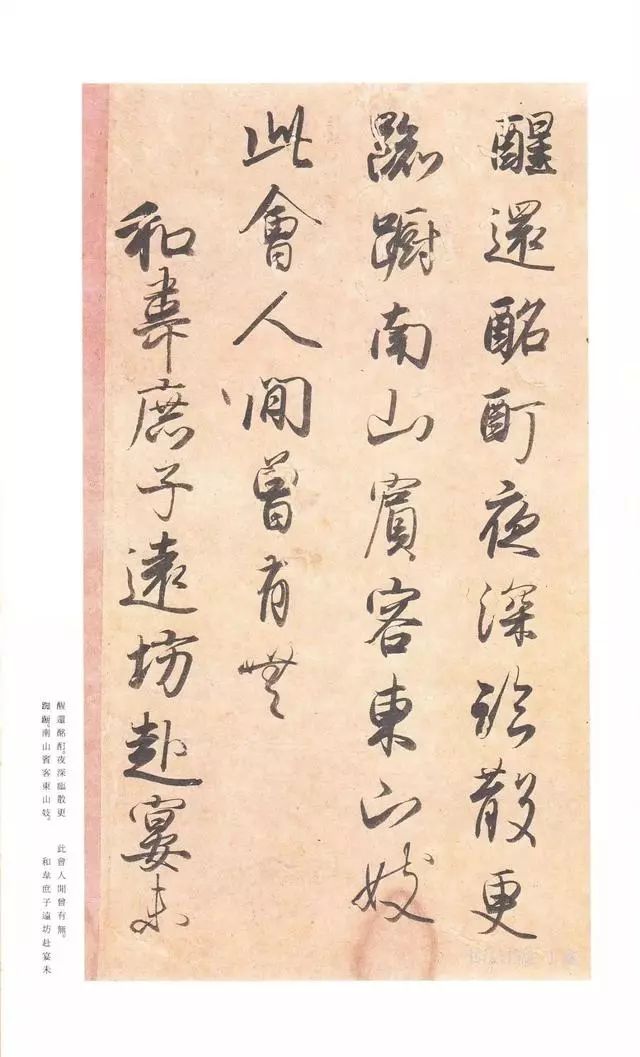 醒還酩酊夜深臨散更
踟躕南山賓客東山妓
此會人間曾有無
和韋庶子遠坊赴宴未
醒還酩酊。夜深臨散更
踟躕。南山賓客東山妓。
此會人間曾有無。
和韋庶子遠坊赴宴未